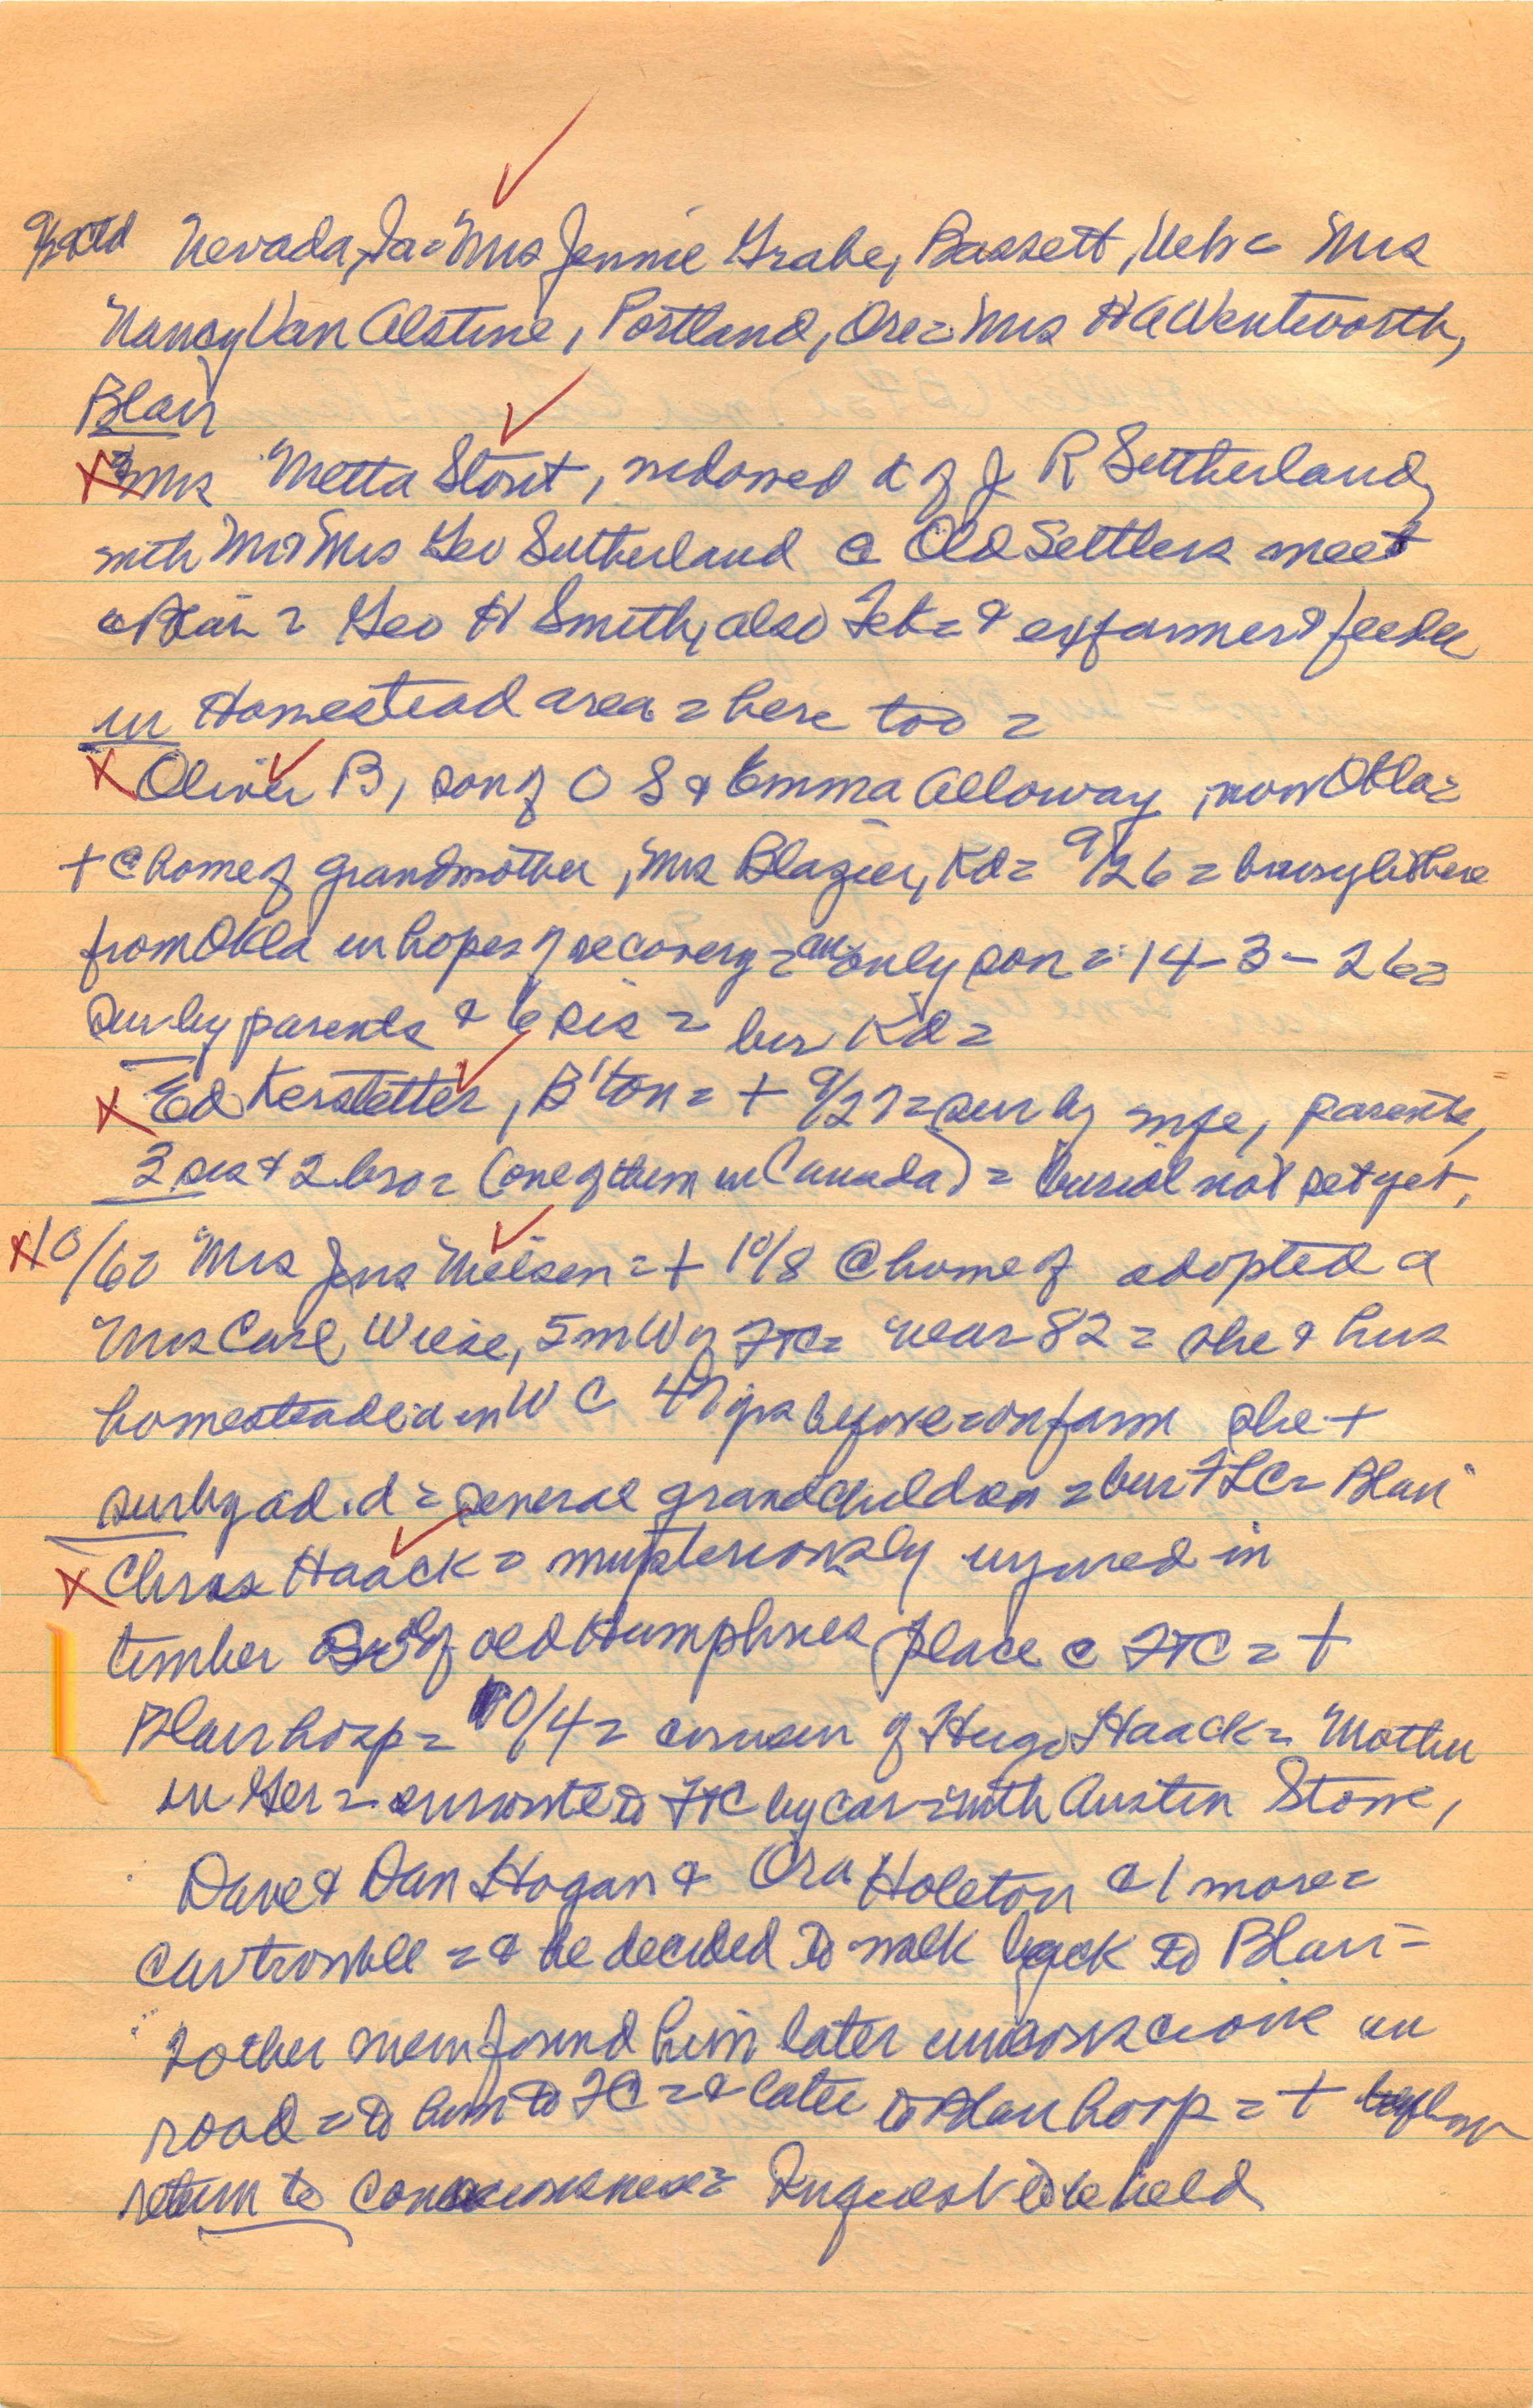 Nevada, Ia = Mrs Jennie Grabe, Bassett, Neb = Mrs
Nancy Van Alstine, Portland, Ore = Mrs H A Wentworth,
Blair
Mrs Metta Stout, widowed d of J R Sutherland,
with Mr & Mrs Geo Sutherland @ Old Settlers meet
@ Blair = Geo H Smith, also Tek = & exfarmer & feeder
in Homestead area = here too =
Oliver B, son of O S & Emma Alloway, now Okla =
+ @ home of grandmother, Mrs Blazier, Kd = 9/26 =
from Okla in hopes of recovery = an only son = 14-3-26 =
sur by parents & 6 sis = bur Kd =
Ed Kerstetter, B'ton = + 9/27 = sur by wife, parents,
3 sis & 2 bro = (one of them in Canada) = burial not set yet,
10/6 = Mrs Jens Nielsen = + 10/8 @ home of adopted d
Mrs Carl Wiese, 5 m W of FTC = near 82 = she & hus
homesteaded in W C 47 yrs before = on farm she +
sur by ad. d = several grandchildren = bur FTC = Blair
Chras Haack = mysteriously injured in
timber of old Humphries place @ FTC = +
Blair hosp = 10/4 = cousin of Hugo Haack = Mother
in Ger = enroute to FTC by car = with Austin Stowe,
Dave & Dan Hogan & Ora Holeton & 1 more =
car trouble = & he decided to walk back to Blair =
2 other men found him later unconscious in
road = to him to FC = & later to Blair hosp = +
return to consciousness = Inquest to be held